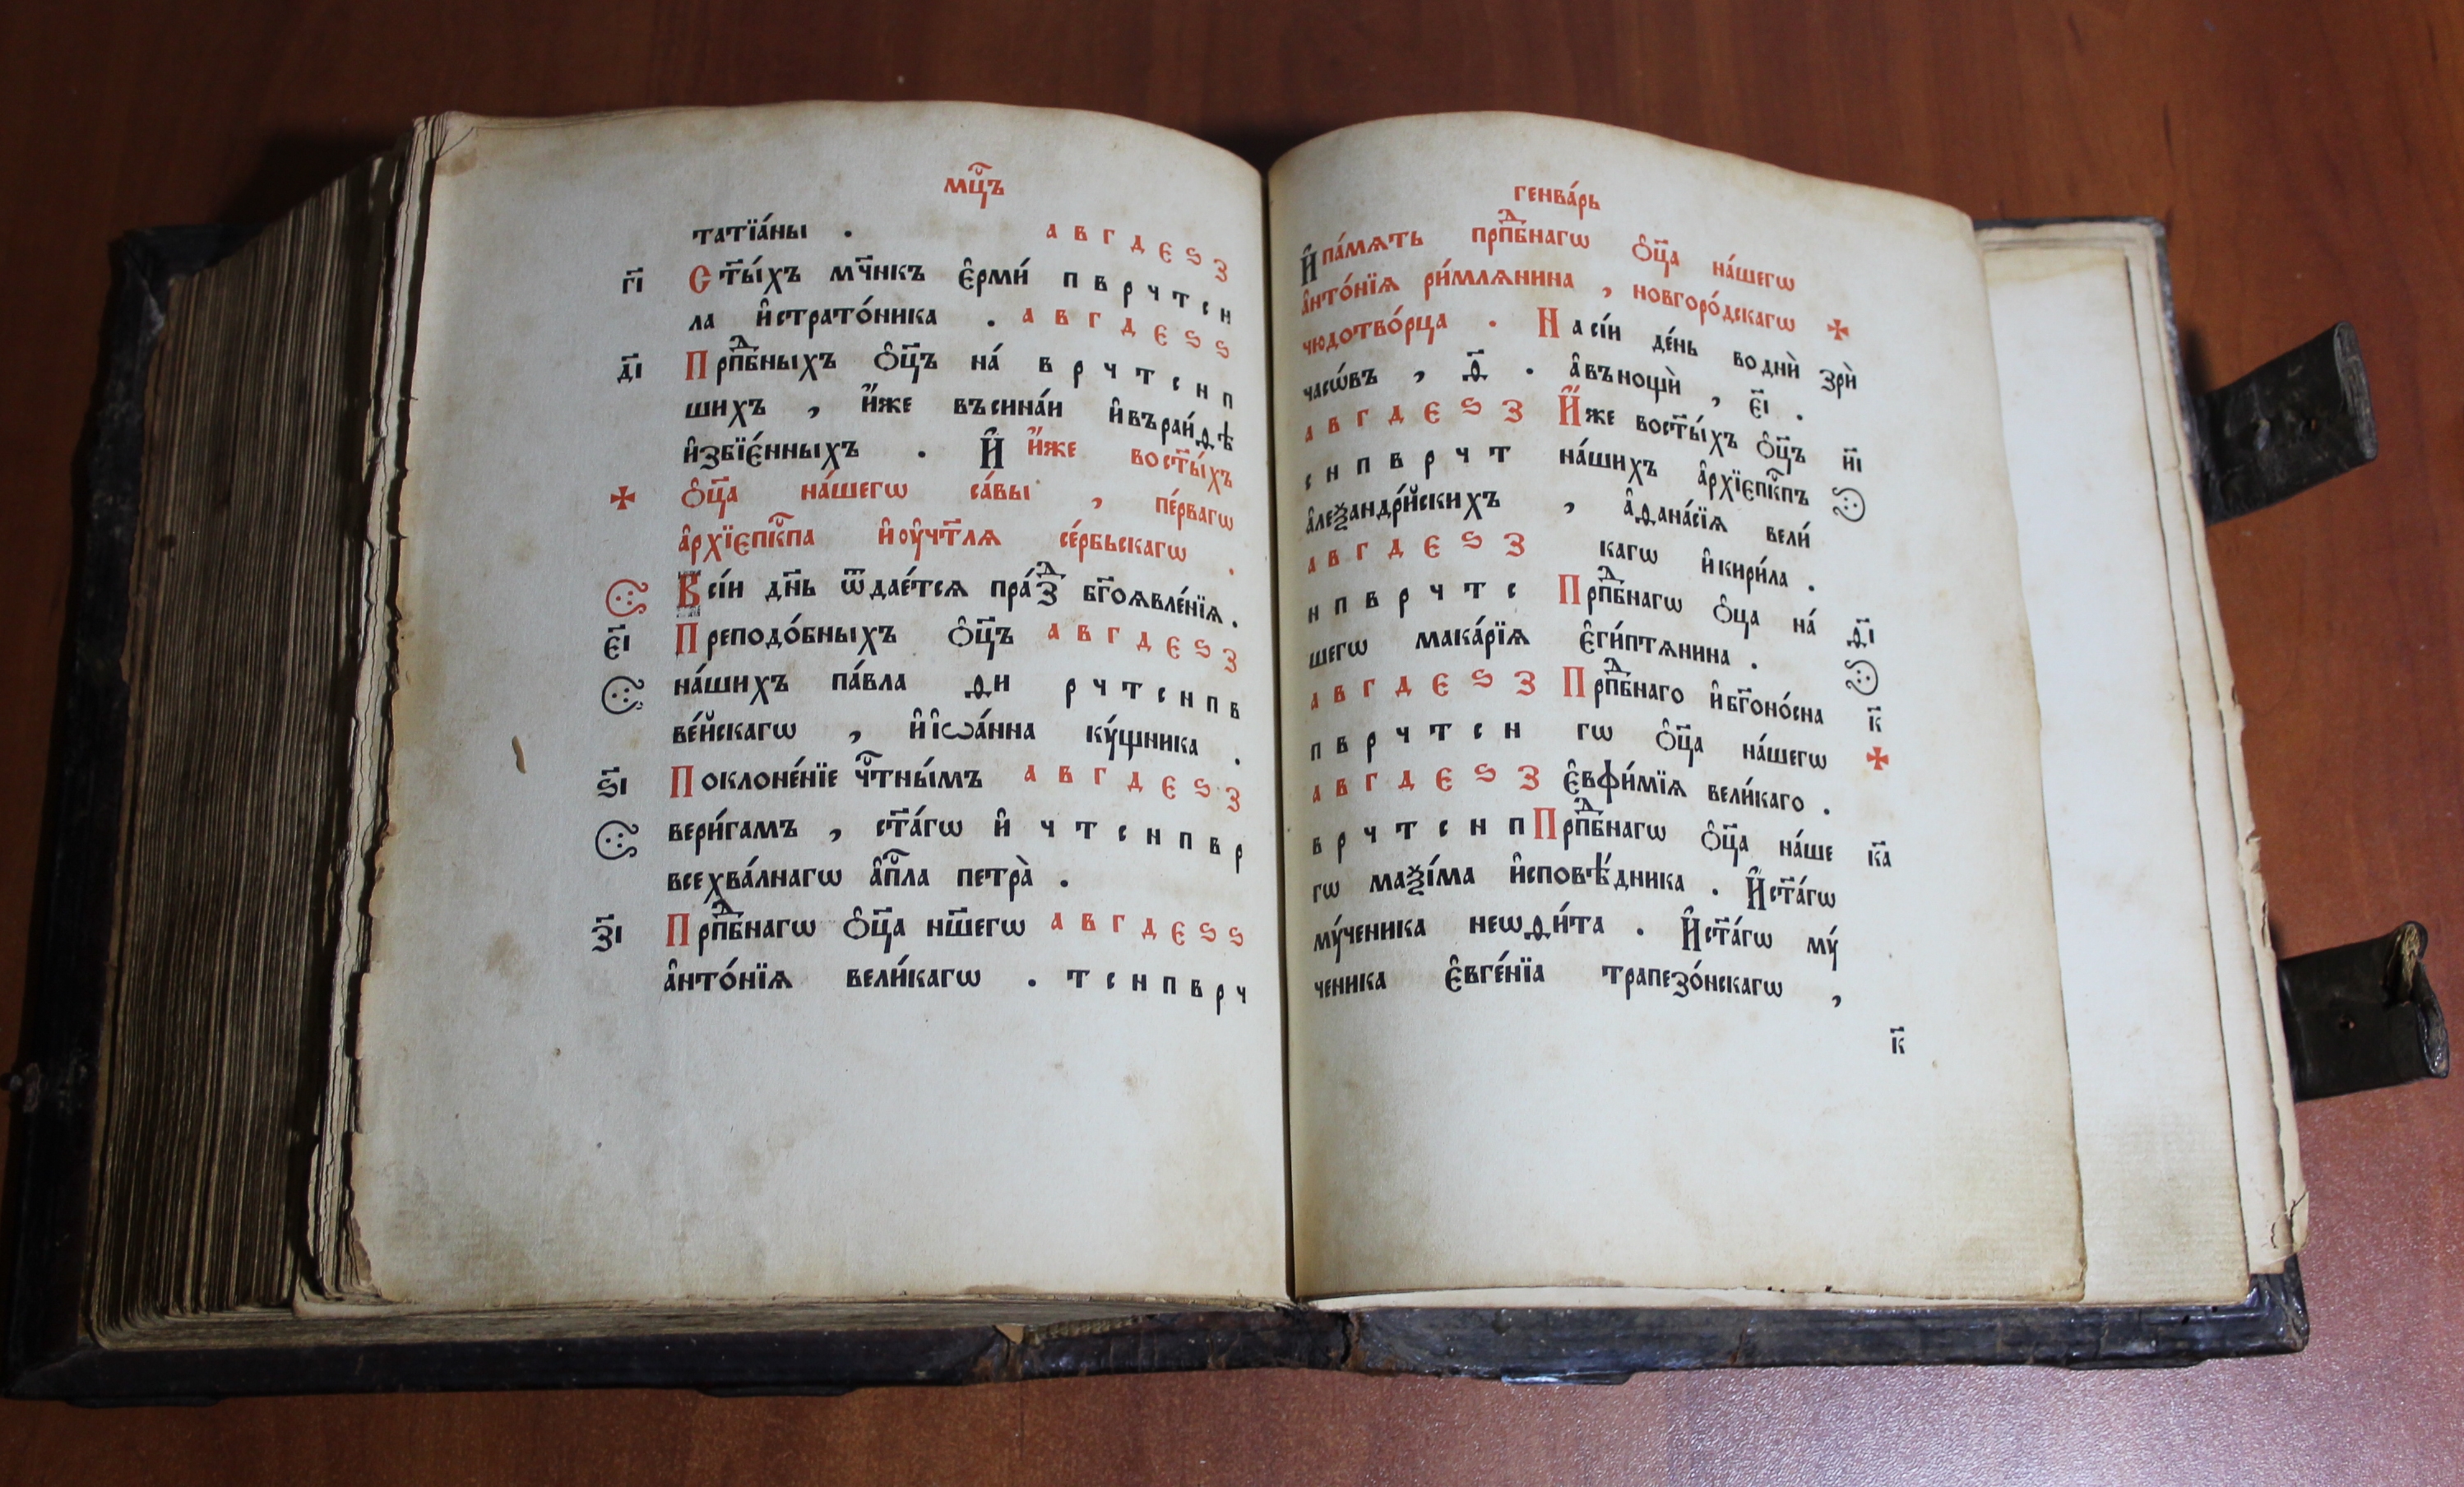 мцⷭ҇ъ
татїа́ны . а в г д є ѕ з
г҃і С т҃ы́хъ мч҃нкъ є҆рми́ п в р ч т с н
ла и҆страто́ника . а в г д є ѕ ѕ
д҃і П рпⷣбныхъ ѻ҆ц҃ъ на́ в р ч т с н п
шихъ , и҆́же въсина́и и҆въраи́ѳѣ
и҆збїе́нныхъ . И҆ и҆́же вост҃ы́хъ
ѻ҆ц҃а на́шегѡ са́вы , пе́рвагѡ
а҆рхїепⷭ҇кпа и҆оу҆чт҃лѧ се́рбьскагѡ .
В сі́и дн҃ь ѿдае́тсѧ пра́ⷣз бг҃оѧвле́нїѧ .
є҃і П реподо́бныхъ ѻ҆ц҃ъ а в г д є ѕ з
на́шихъ па́вла ѳи р ч т с н п в
ве́йскагѡ , и҆і҆ѡа́нна ку́щника .
ѕ҃і П оклоне́нїе чⷭ҇тны́мъ а в г д є ѕ з
вери́гамъ , ст҃а́гѡ и҆ ч т с н п в р
всехва́лнагѡ а҆пⷭ҇ла петра̀ .
з҃і П рпⷣбнагѡ ѻ҆ц҃а нш҃егѡ а в г д є ѕ ѕ
а҆нто́нїѧ вели́кагѡ . т с н п в р ч
генва́рь
И҆ па́мѧть прпⷣбнагѡ ѻ҆ц҃а на́шегѡ
а҆нто́нїѧ ри́млѧнина , новгоро́дскагѡ
чюдотво́рца . Н а сі́и де́нь во днѝ зрѝ
часѡ́въ , ѳ҃ . а҆ въ нощѝ , є҃і .
а в г д є ѕ з И҆́ же вост҃ы́хъ ѻ҆ц҃ъ и҃і
с н п в р ч т на́шихъ а҆рхїепⷭ҇кпъ
а҆леѯандрі́йскихъ , а҆ѳана́сїѧ вели́
а в г д є ѕ з кагѡ и҆кири́ла .
н п в р ч т с П рпⷣбнагѡ ѻ҆ц҃а на́ ѳ҃і
шегѡ мака́рїѧ є҆ги́птѧнина .
а в г д є ѕ з П рпⷣбнаго и҆бг҃оно́сна к҃
п в р ч т с н гѡ ѻ҆ц҃а на́шегѡ
а в г д є ѕ з є҆вфи́мїѧ вели́каго .
в р ч т с н п П рпⷣбнагѡ ѻ҆ц҃а на́ше к҃а
гѡ маѯі́ма и҆сповѣ́дника . И҆ ст҃а́гѡ
му́ченика неѡѳи́та . И҆ ст҃а́гѡ му́
ченика є҆вге́нїа трапезо́нскагѡ ,
к҃